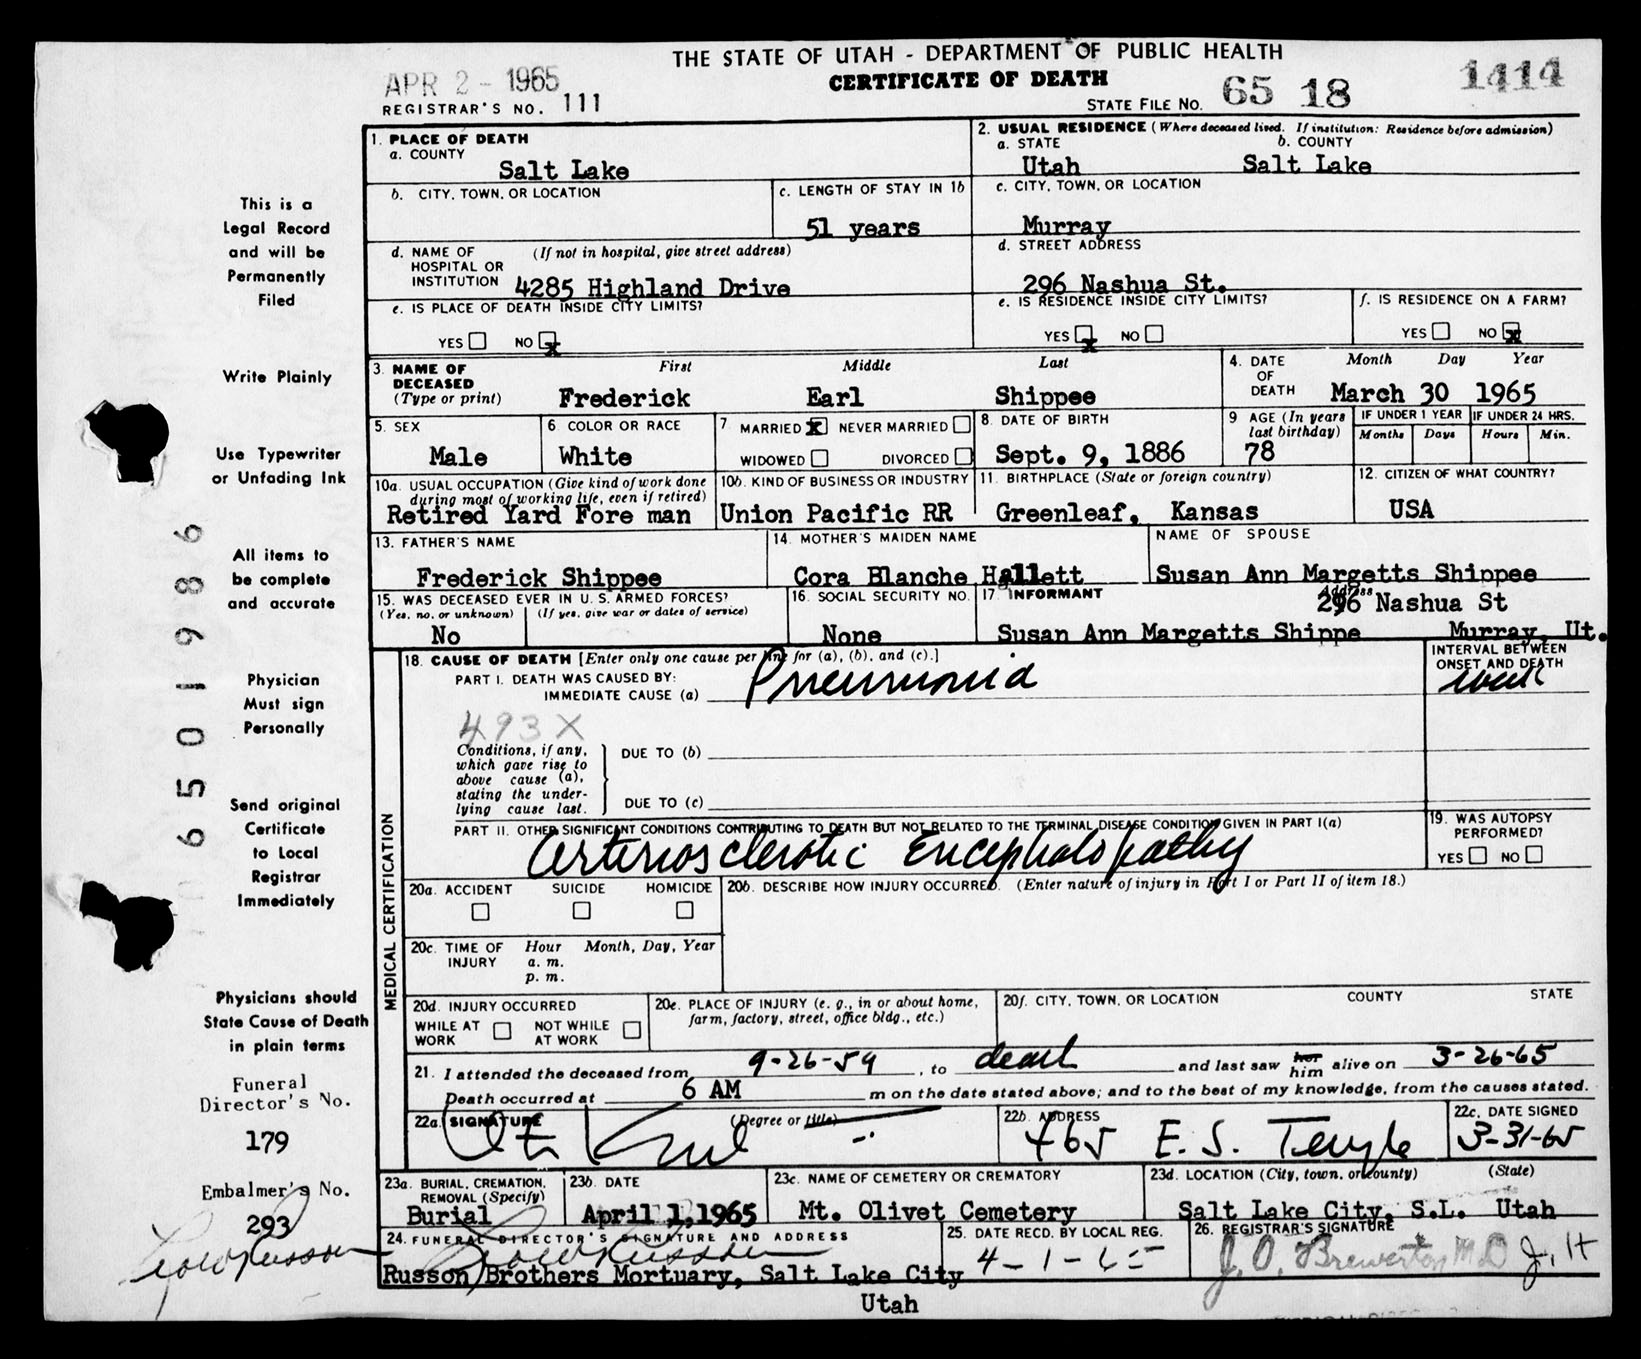 THE STATE OF UTAH - DEPARTMENT OF PUBLIC HEALTH
CERTIFICATE OF DEATH
APR 2 - 1965
REGISTRAR'S NO. 111
STATE FILE NO. 65 18 1414
This is a
Legal Record
and will be
Permanently
Filed
Write Plainly
Use Typewriter
or Unfading Ink
All items to
be complete
and accurate
Physician
Must sign
Personally
Send original
Certificate
to Local
Registrar
Immediately
Physicians should
State Cause of Death
in plain terms
Funeral
Director's No.
179
Embalmer's No.
293
Geo W Russon
6501986
1. PLACE OF DEATH
a. COUNTY
Salt Lake
2. USUAL RESIDENCE (Where deceased lived. If institution: Residence before admission)
a. STATE b. COUNTY
Utah Salt Lake
b. CITY, TOWN, OR LOCATION
c. LENGTH OF STAY IN 1b
51 years
c. CITY, TOWN, OR LOCATION
Murray
d. NAME OF (If not in hospital, give street address)
HOSPITAL OR
INSTITUTION 4285 Highland Drive
d. STREET ADDRESS
296 Nashua St.
e. IS PLACE OF DEATH INSIDE CITY LIMITS?
YES NO x
e. IS RESIDENCE INSIDE CITY LIMITS?
YES x NO
f. IS RESIDENCE ON A FARM?
YES NO x
3. NAME OF DECEASED (Type or print)
First Middle Last
Frederick Earl Shippee
4. DATE OF DEATH
Month Day Year
March 30 1965
5. SEX
Male
6. COLOR OR RACE
White
7. MARRIED x NEVER MARRIED
WIDOWED DIVORCED
8. DATE OF BIRTH
Sept. 9, 1886
9 AGE (In years last birthday)
78
IF UNDER 1 YEAR
Months Days
IF UNDER 24 HRS.
Hours Min.
10a. USUAL OCCUPATION (Give kind of work done
during most of working life, even if retired)
Retired Yard Fore man
10b. KIND OF BUSINESS OR INDUSTRY
Union Pacific RR
11. BIRTHPLACE (State or foreign country)
Greenleaf, Kansas
12. CITIZEN OF WHAT COUNTRY?
USA
13. FATHER'S NAME
Frederick Shippee
14. MOTHER'S MAIDEN NAME
Cora Blanche Hallett
NAME OF SPOUSE
Susan Ann Margetts Shippee
15. WAS DECEASED EVER IN U.S. ARMED FORCES?
(Yes, no, or unknown) (If yes, give war or dates of service)
No
16. SOCIAL SECURITY NO.
None
17 INFORMANT Address
296 Nashua St
Susan Ann Margetts Shippe Murray, Ut.
MEDICAL CERTIFICATION
18. CAUSE OF DEATH [Enter only one cause per line for (a), (b), and (c).]
PART I. DEATH WAS CAUSED BY:
IMMEDIATE CAUSE (a) Pneumonia
INTERVAL BETWEEN
ONSET AND DEATH
week
493X
Conditions, if any,
which gave rise to
above cause (a),
stating the under-
lying cause last.
DUE TO (b)
DUE TO (c)
PART II. OTHER SIGNIFICANT CONDITIONS CONTRIBUTING TO DEATH BUT NOT RELATED TO THE TERMINAL DISEASE CONDITION GIVEN IN PART I(a)
Arteriosclerotic Encephalopathy
19. WAS AUTOPSY
PERFORMED?
YES NO
20a. ACCIDENT SUICIDE HOMICIDE
20b. DESCRIBE HOW INJURY OCCURRED. (Enter nature of injury in Part I or Part II of item 18.)
20c. TIME OF INJURY
Hour Month, Day, Year
a. m.
p. m.
20d. INJURY OCCURRED
WHILE AT WORK NOT WHILE AT WORK
20e. PLACE OF INJURY (e. g., in or about home,
farm, factory, street, office bldg., etc.)
20f. CITY, TOWN, OR LOCATION COUNTY STATE
21. I attended the deceased from 9-26-59, to death and last saw her him alive on 3-26-65
Death occurred at 6 AM m on the date stated above; and to the best of my knowledge, from the causes stated.
22a. SIGNATURE (Degree or title)
22b. ADDRESS
465 E. S. Temple
22c. DATE SIGNED
3-31-65
23a. BURIAL, CREMATION,
REMOVAL (Specify)
Burial
23b. DATE
April 1, 1965
23c. NAME OF CEMETERY OR CREMATORY
Mt. Olivet Cemetery
23d. LOCATION (City, town, or county) (State)
Salt Lake City, S.L. Utah
24. FUNERAL DIRECTOR'S SIGNATURE AND ADDRESS
Geo W Russon
Russon Brothers Mortuary, Salt Lake City
Utah
25. DATE RECD. BY LOCAL REG.
4-1-65
26. REGISTRAR'S SIGNATURE
J. O. Brewerton MD J. H